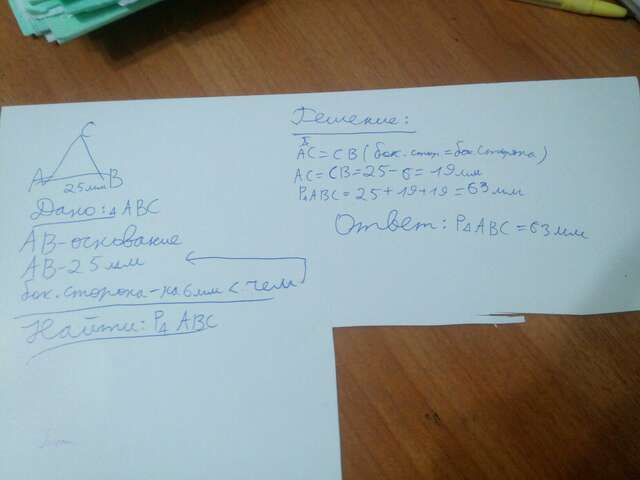 C
A B
25 мм
Дано: △ABC
AB-основание
AB-25 мм
бок. сторона-на 6 мм < чем
Найти: P△ ABC
Решение:
AC = CB (бок. стор. = бок. сторона)
AC = CB = 25 - 6 = 19 мм
P△ABC = 25 + 19 + 19 = 63 мм
Ответ: P△ABC = 63 мм